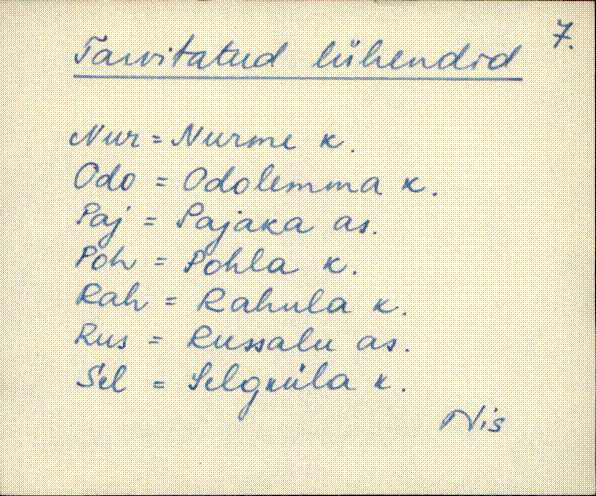 7.
Tarvitatud lühendid
Nur = Nurme k.
Odo = Odolemma k.
Paj = Pajaka as.
Poh = Pohla k.
Rah = Rahula k.
Rus = Russalu as.
Sel = Selgküla k.
Nis